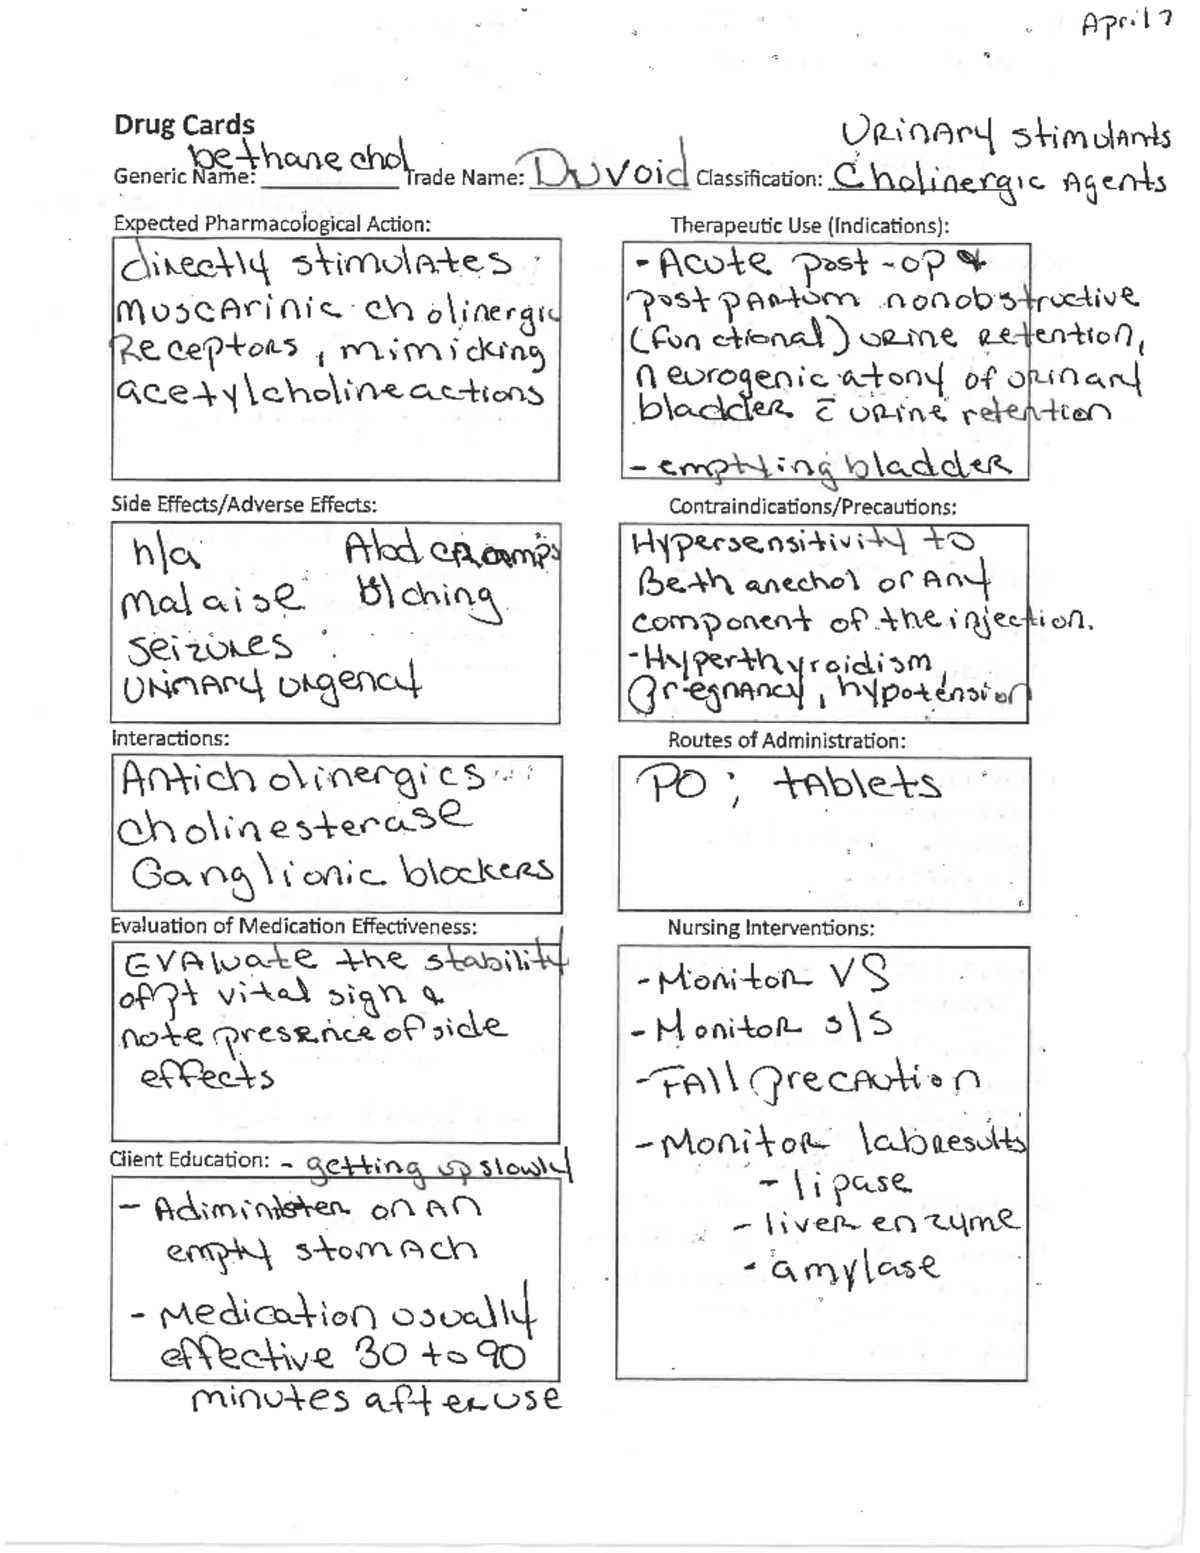 April 7
Drug Cards
Urinary stimulants
Generic Name: bethanechol Trade Name: Duvoid Classification: Cholinergic Agents
Expected Pharmacological Action:
directly stimulates
muscarinic cholinergic
Receptors, mimicking
acetylcholine actions
Therapeutic Use (Indications):
- Acute post-op &
postpartum nonobstructive
(functional) urine retention,
neurogenic atony of urinary
bladder c̄ urine retention
- emptying bladder
Side Effects/Adverse Effects:
h/a Abd cramps
malaise
seizures
urinary urgency
Contraindications/Precautions:
Hypersensitivity to
Bethanechol or Any
component of the injection.
- Hyperthyroidism
pregnancy, hypotension
Interactions:
Anticholinergics
cholinesterase
Ganglionic blockers
Routes of Administration:
PO; tablets
Evaluation of Medication Effectiveness:
Evaluate the stability
of pt vital sign &
note presence of side
effects
Nursing Interventions:
- Monitor VS
- Monitor s/s
- Fall precaution
- Monitor lab results
- lipase
- liver enzyme
- amylase
Client Education: - getting up slowly
- Adiminister on An
empty stomach
- Medication usually
effective 30 to 90
minutes after use